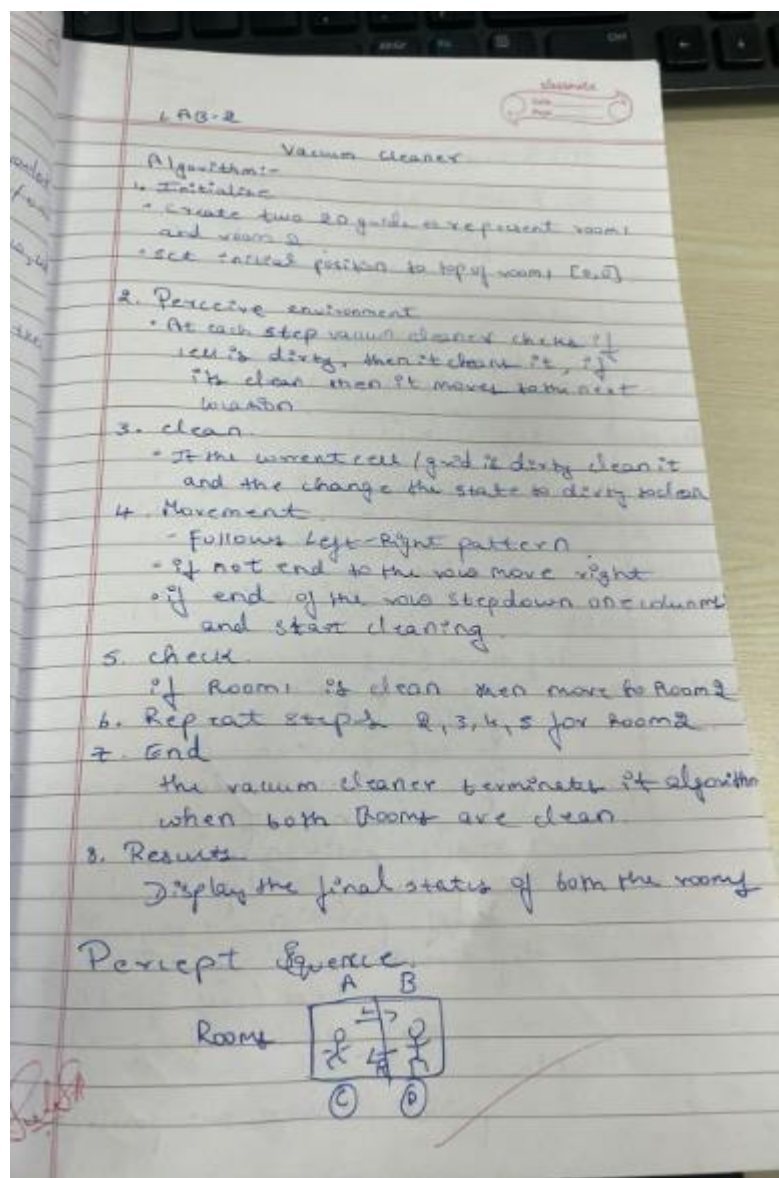 classmate
Date
Page
LAB-2
Vacuum Cleaner
Algorithm:-
1. Initialize
• Create two 2D grids to represent room 1
and room 2
• Set initial position to top of room 1 [0,0]
2. Perceive environment
• At each step vacuum cleaner checks if
cell is dirty, then it cleans it, if
its clean then it moves to the next
location
3. clean
• If the current cell / grid is dirty clean it
and the change the state to dirty to clean
4. Movement
- Follows Left-Right pattern
• if not end to the row move right
• if end of the row stepdown one column
and start cleaning.
5. check
if Room 1 is clean then move to Room 2
6. Repeat steps 2, 3, 4, 5 for Room 2
7. End
the vacuum cleaner terminates it algorithm
when both Rooms are clean
8. Results
Display the final status of both the rooms
Percept Squence.
A B
Rooms
C D